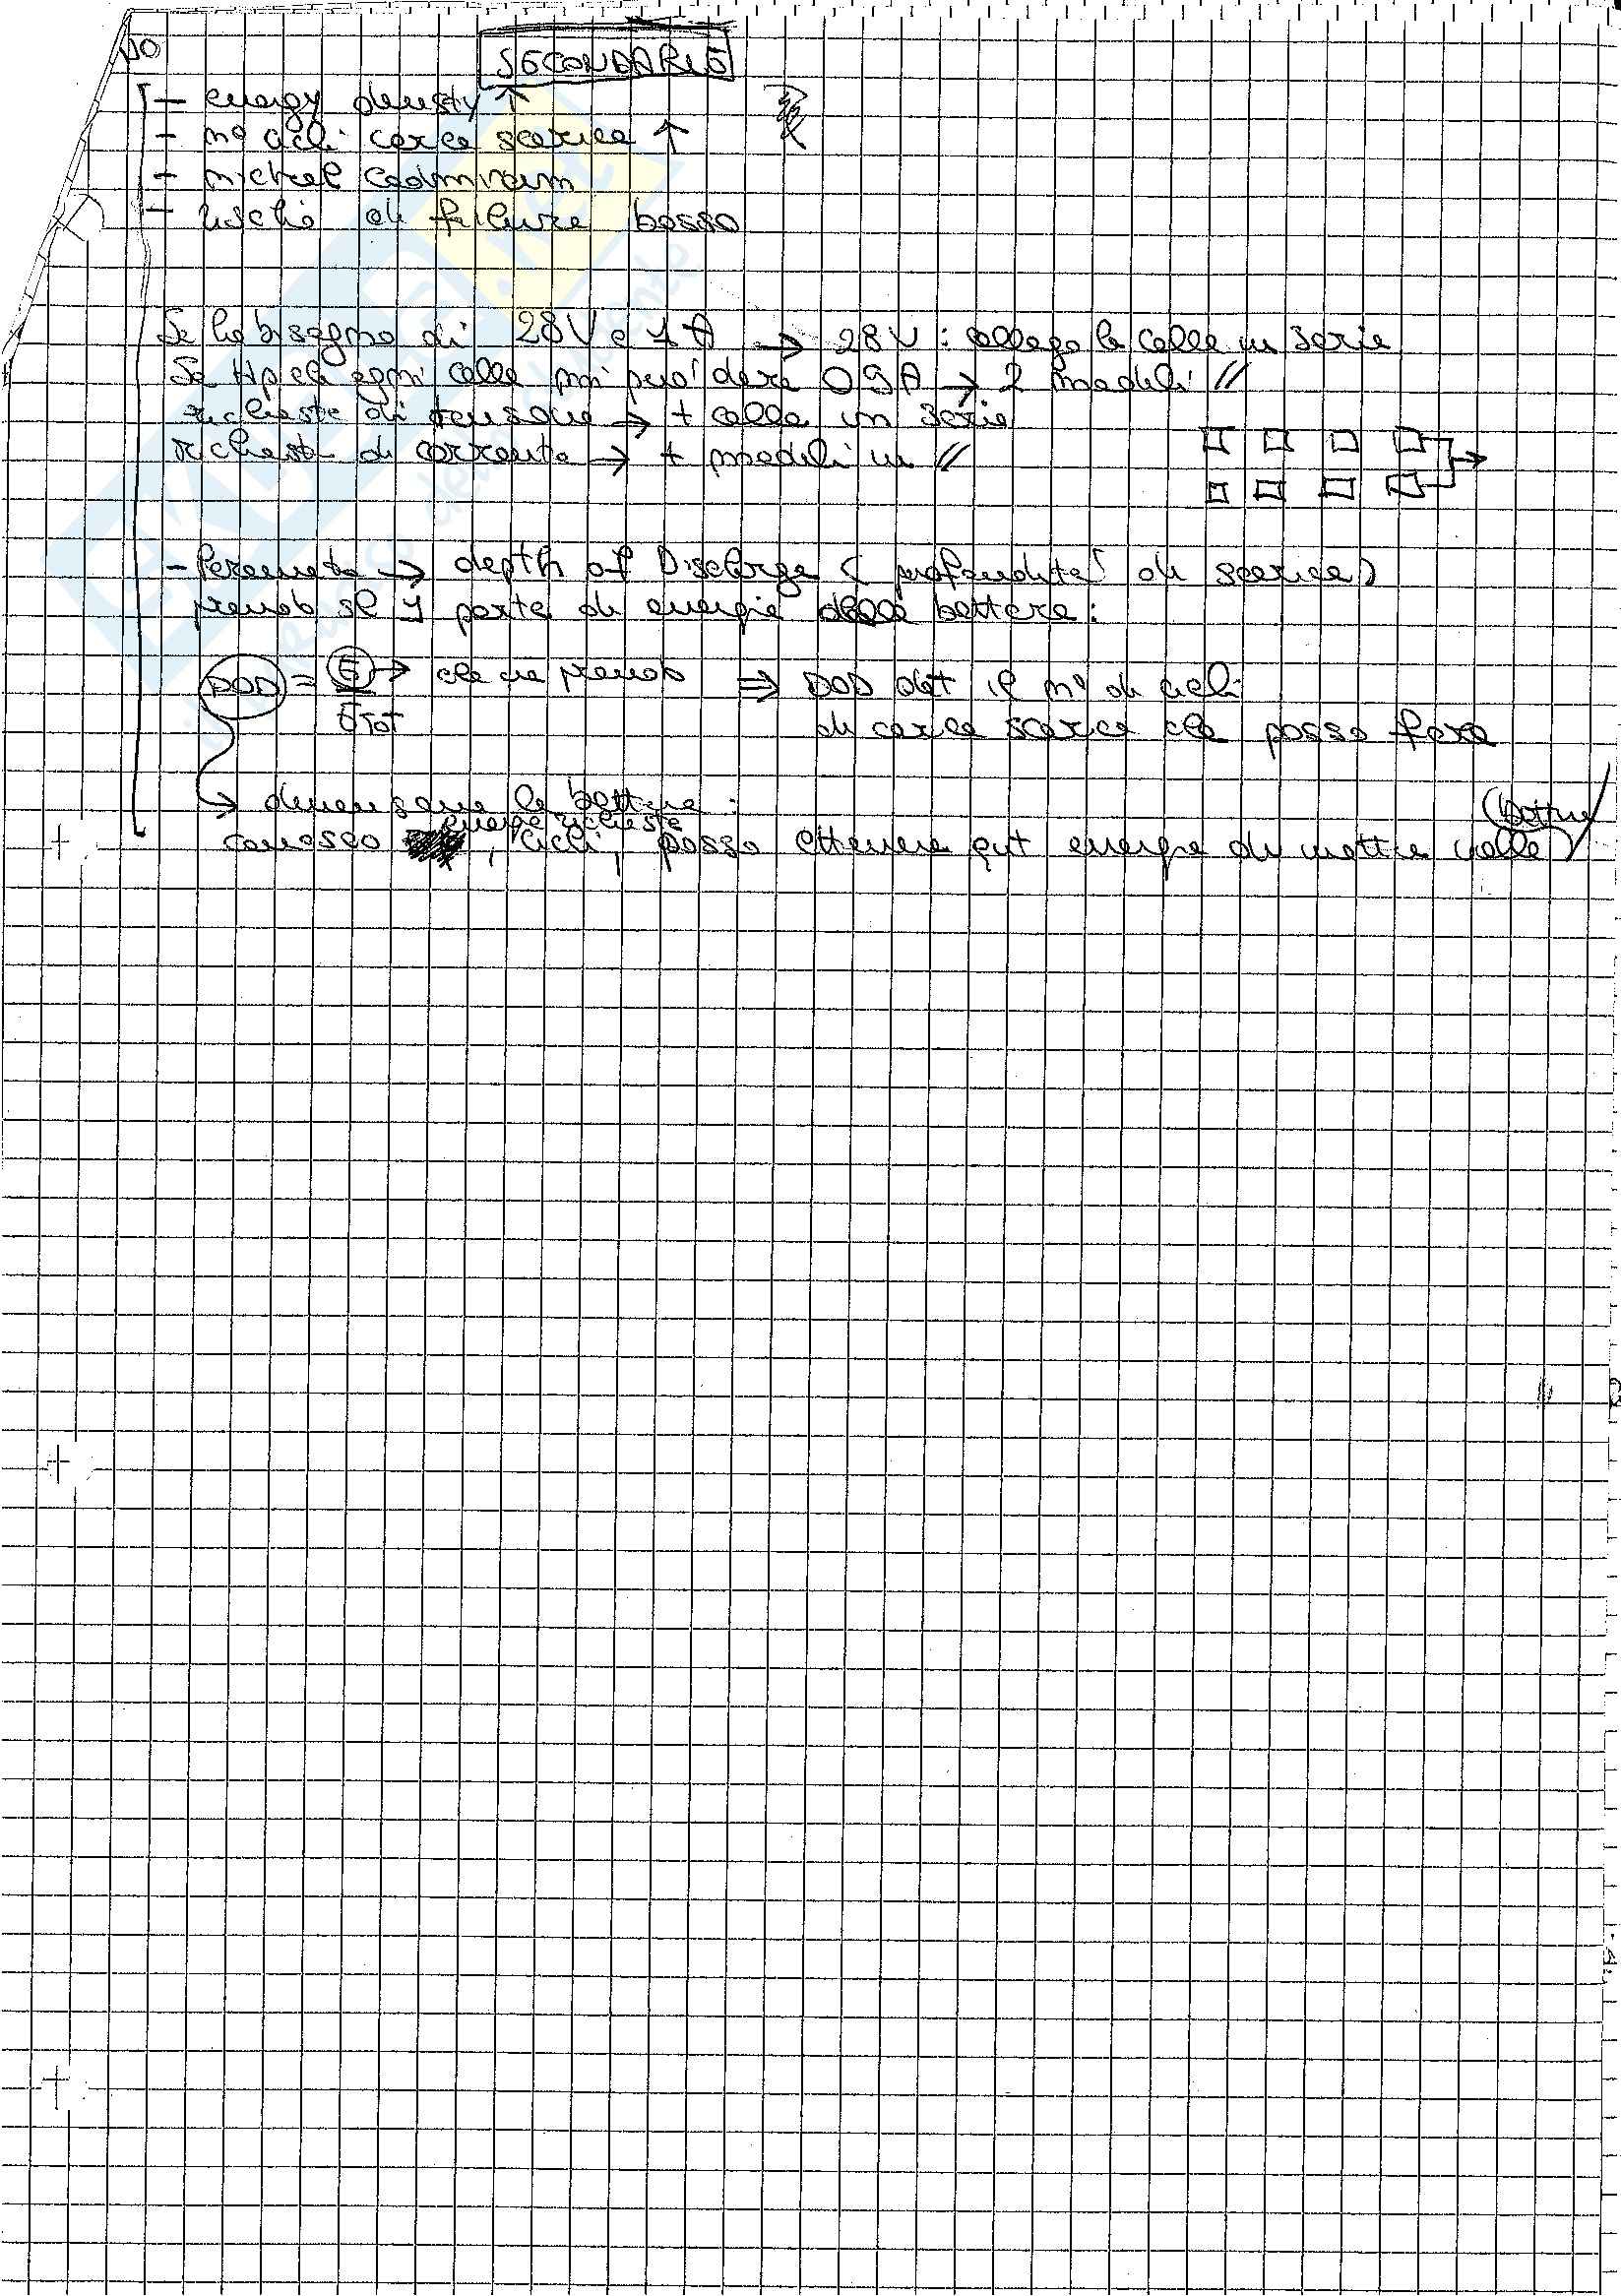 10
SECONDARIE
- energy density ↑
- n° cicli carica scarica ↑
- nichel cadmium
- rischio di failure basso
Se ho bisogno di 28V e 1A → 28V : collego le celle in serie
Se Hp che ogni cella mi può dare 0.5A → 2 moduli //
richiesta di tensione → + celle in serie
richiesta di corrente → + moduli in //
- Parametro → depth of Discharge (profondità di scarica)
prendo sl 1 parte di energia delle batterie :
DOD = E → che ne prendo ⇒ DOD det il n° di cicli
ETOT di carica scarica che posso fare
→ dimensiona le batterie :
energia richiesta (batterie
conosco , cicli, posso ottenere qnt energia da mettere nelle